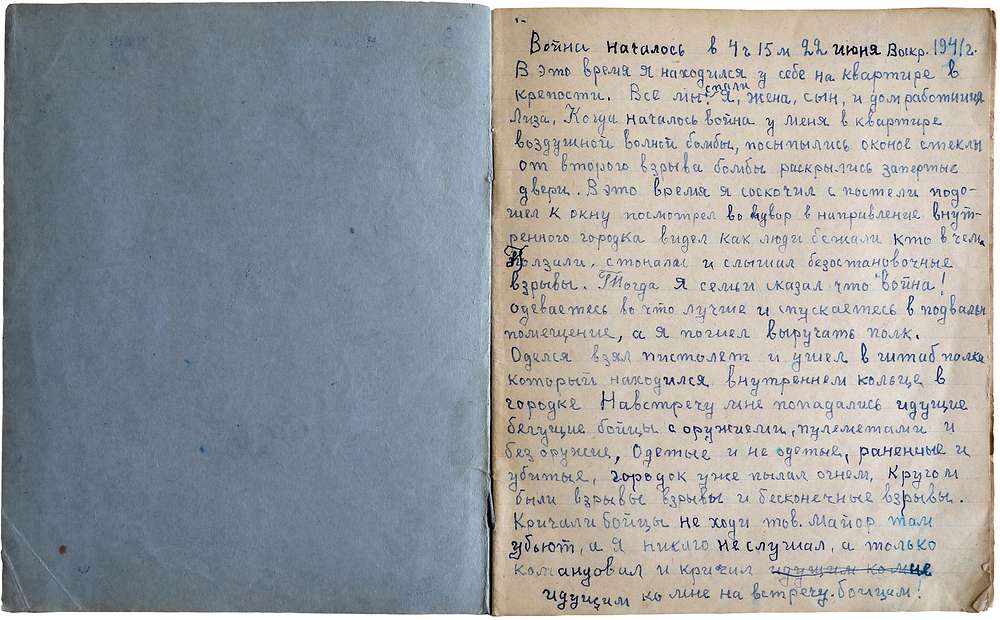 Война началось в 4ч 15м 22 июня Воскр. 1941г.
В это время я находился у себе на квартире в
спали
крепости. Все мы: я, жена, сын, и домработница
Лиза, Когда началось война у меня в квартире
воздушной волной бомбы, посыпылись оконое стеклы
от второго взрыва бомбы раскрылись запертые
двери. В это время я соскочил с постели подо-
шел к окну посмотрел во двор в направление внут-
ренного городка видел как люди бежали кто в чем.
Ползали, стонали и слышал безостановочные
взрывы. Тогда я семьи сказал что "война!
одеваетесь во что лучше и спускаетесь в подвальн
помещение, а я пошел выручать полк.
Оделся взял пистолет и ушел в штаб полка
который находился внутреннем кольце в
городке Навстречу мне попадались идущие
бегущие бойцы с оружиеми, пулеметами и
без оружие, Одетые и не одетые, раненные и
убитые, городок уже пылал огнем, Кругом
были взрывы взрывы и бесконечные взрывы.
Кричали бойцы не ходи тов. Майор там
убьют, а я никаго не слушал, а только
командовал и кричал идущим комне
идущим ко мне на встречу. бойцам!